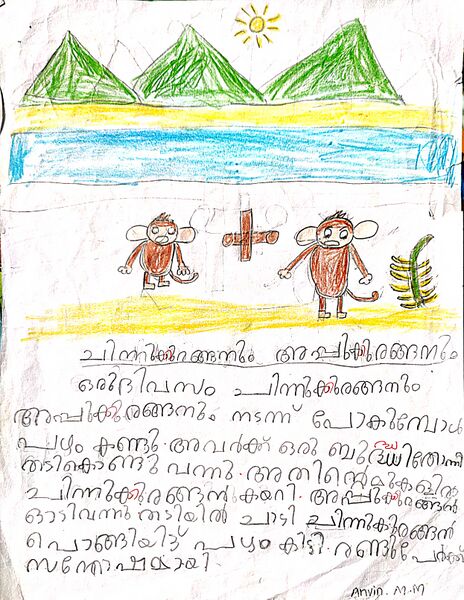 ചിന്നുക്കുരങ്ങനും അപ്പുക്കുരങ്ങനും
ഒരുദിവസം ചിന്നുക്കുരങ്ങനും
അപ്പുക്കുരങ്ങനും നടന്ന് പോകുമ്പോൾ
പഴം കണ്ടു. അവർക്ക് ഒരു ബുദ്ധിതോന്നി
തടികൊണ്ടു വന്നു. അതിന്റെമുകളിൽ
ചിന്നുക്കുരങ്ങൻ കയറി. അപ്പുക്കുരങ്ങൻ
ഓടിവന്നു തടിയിൽ ചാടി ചിന്നുക്കുരങ്ങൻ
പൊങ്ങിയിട് പഴം കിട്ടി. രണ്ടുപേർക്ക്
സന്തോഷമായി.
Anvin. M.M